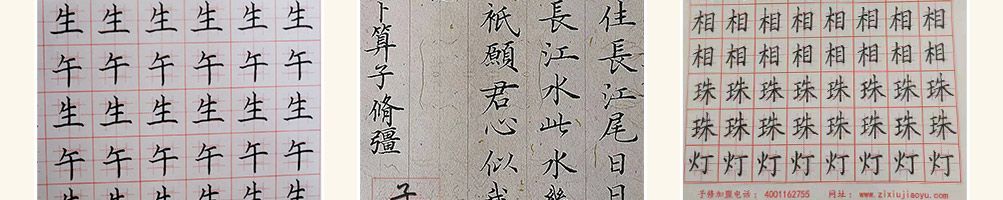 生生生生生生
午午午午午午
生生生生生生
午午午午午午
住長江尾日日
長江水此水幾
祇願君心似我
卜算子脩彊
相相相相相相相相
相相相相相相相相
珠珠珠珠珠珠珠珠
珠珠珠珠珠珠珠珠
灯灯灯灯灯灯灯灯
子修加盟电话：4001162755 网址：www.zixiujiaoyu.com